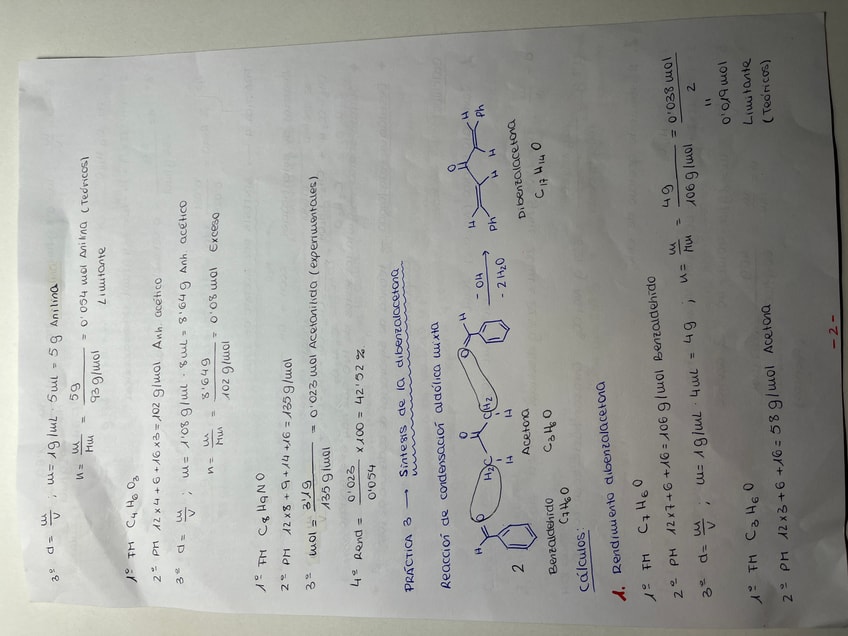 3º d = m/V ; m = 1 g/mL · 5 mL = 5 g Anilina
n = m/Mm = 5 g / 93 g/mol = 0'054 mol Anilina (Teóricos)
Limitante
1º FM C4H6O3
2º PM 12x4+6+16x3=102 g/mol Anh. acético
3º d = m/V ; m = 1'08 g/ml · 8 mL = 8'64 g Anh. acético
n = m/Mm = 8'64 g / 102 g/mol = 0'08 mol Exceso
1º FM C8H9NO
2º PM 12x8+9+14+16=135 g/mol
3º mol = 3'1 g / 135 g/mol = 0'023 mol Acetanilida (experimentales)
4º Rend = 0'023 / 0'054 x100 = 42'52 %
PRÁCTICA 3 → Síntesis de la dibenzalacetona
Reacción de condensación aldólica mixta
H O H2C O CH2 O H -OH O
H H H Ph H H Ph
2 - 2 H2O
Benzaldehído Acetona Dibenzalacetona
C7H6O C3H6O C17H14O
Cálculos:
1. Rendimiento dibenzalacetona
1º FM C7H6O
2º PM 12x7+6+16=106 g/mol Benzaldehído
3º d = m/V ; m = 1 g/mL · 4 mL = 4 g ; n = m/Mm = 4 g / 106 g/mol = 0'038 mol / 2
"
0'019 mol
Limitante
(Teóricos)
1º FM C3H6O
2º PM 12x3+6+16=58 g/mol Acetona
-2-